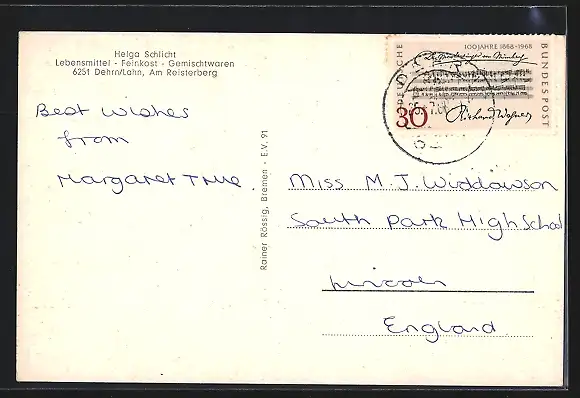 Helga Schlicht
Lebensmittel - Feinkost - Gemischtwaren
6251 Dehrn/Lahn, Am Reisterberg
Best Wishes
from
Margaret True.
Rainer Rössig, Bremen - E.V. 91
DEUTSCHE
BUNDESPOST
100 JAHRE 1868-1968
Die Meistersinger von Nürnberg
30
Richard Wagner
Miss M. J. Widdowson
South Park High School
Lincoln
England